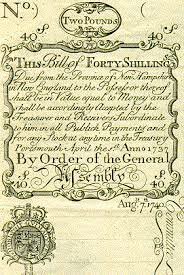 No.
TWO POUNDS
40s. 40s.
THIS Bill of FORTY SHILLINGS
Due from the Province of New Hampshire
in New England, to the Possessor thereof
shall be in Value equal to Money and
shall be accordingly Accepted by the
Treasurer and Receivers Subordinate
to him in all Publick Payments and
for any Stock at any time in the Treasury
Portsmouth April the 1st Anno 1737
By Order of the General
40s. Assembly 40s.
Augt. 7, 1740